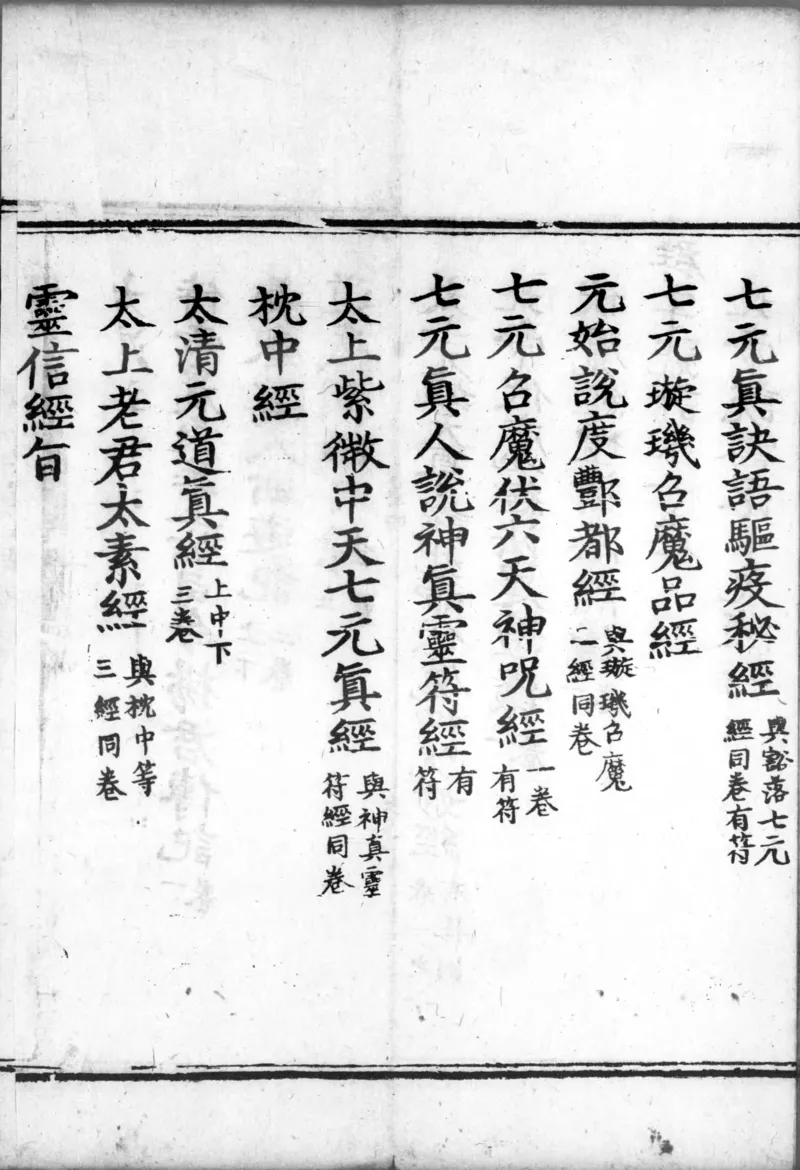 七元真訣語驅疫秘經與豁落七元經同卷有符
七元璇璣召魔品經
元始說度酆都經與璇璣召魔二經同卷
七元召魔伏六天神呪經一卷有符
七元真人說神真靈符經有符
太上紫微中天七元真經與神真靈符經同卷
枕中經
太清元道真經上中下三卷
太上老君太素經與枕中等三經同卷
靈信經旨